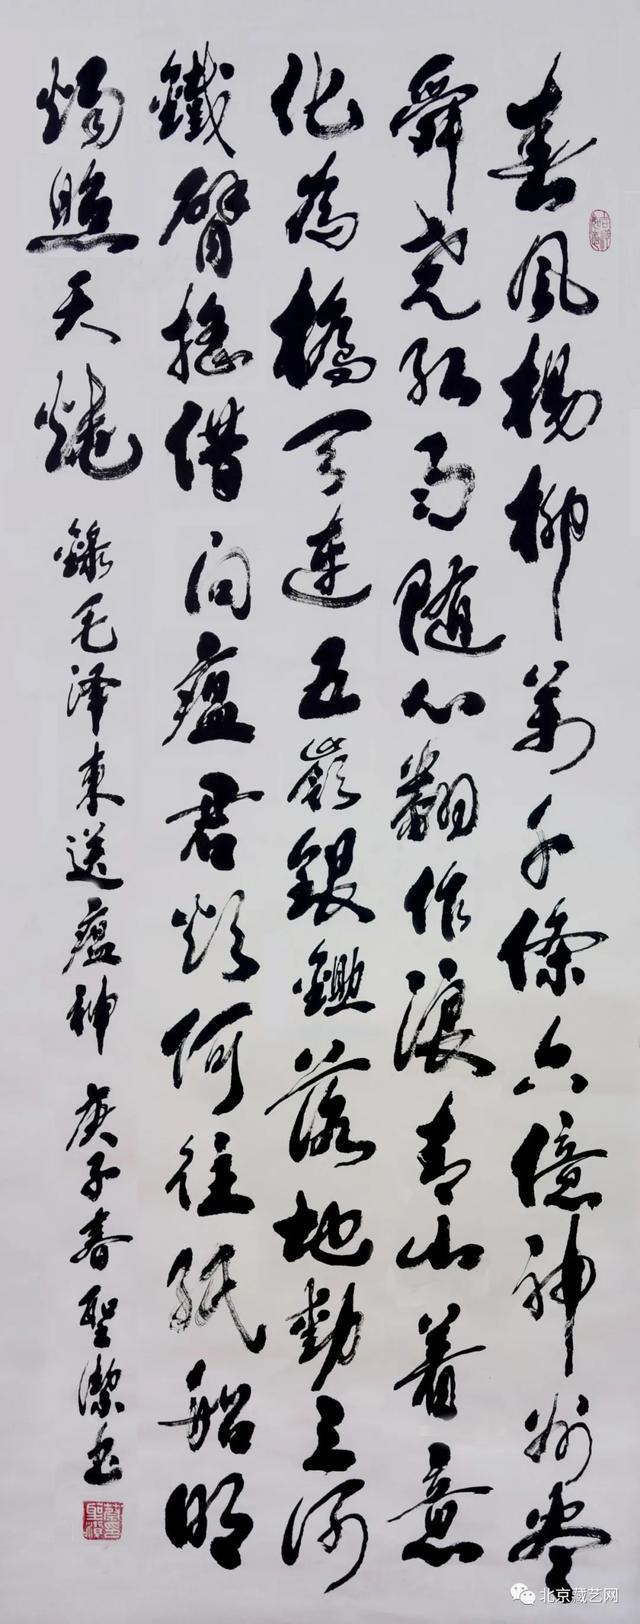 春風楊柳萬千條六億神州盡
舜堯紅雨随心翻作浪青山着意
化為橋天連五嶺銀鋤落地動三河
鐵臂搖借問瘟君欲何往紙船明
燭照天燒
錄毛泽東送瘟神 庚子春聖潔书
北京藏艺网